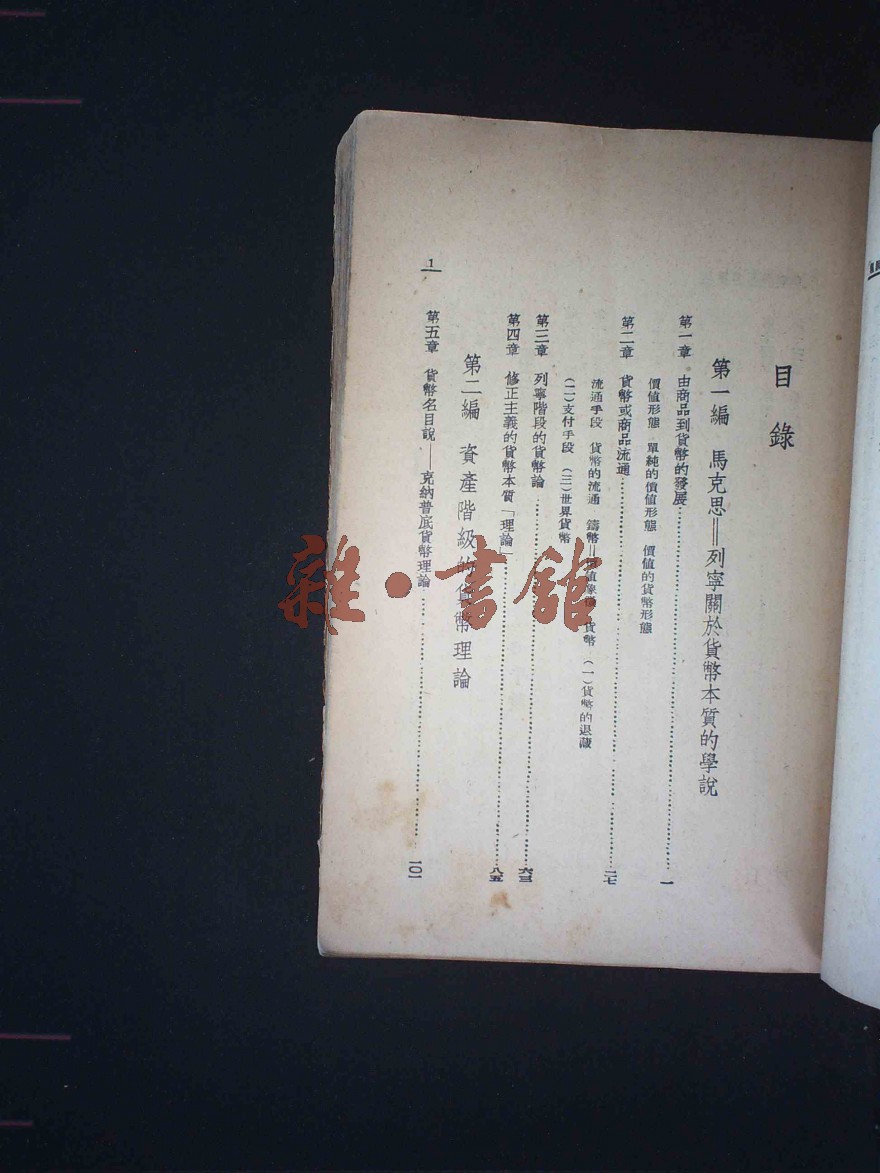 目錄
第一編 馬克思＝列寧關於貨幣本質的學說
第一章 由商品到貨幣的發展……一
價値形態 單純的價値形態 價値的貨幣形態
第二章 貨幣或商品流通……二七
流通手段 貨幣的流通 鑄幣＝價值象徵 貨幣 （一）貨幣的退藏
（二）支付手段 （三）世界貨幣
第三章 列寧階段的貨幣論……六三
第四章 修正主義的貨幣本質「理論」……八五
第二編 資產階級的貨幣理論
第五章 貨幣名目說——克納普底貨幣理論……一〇一
1
雜·書館